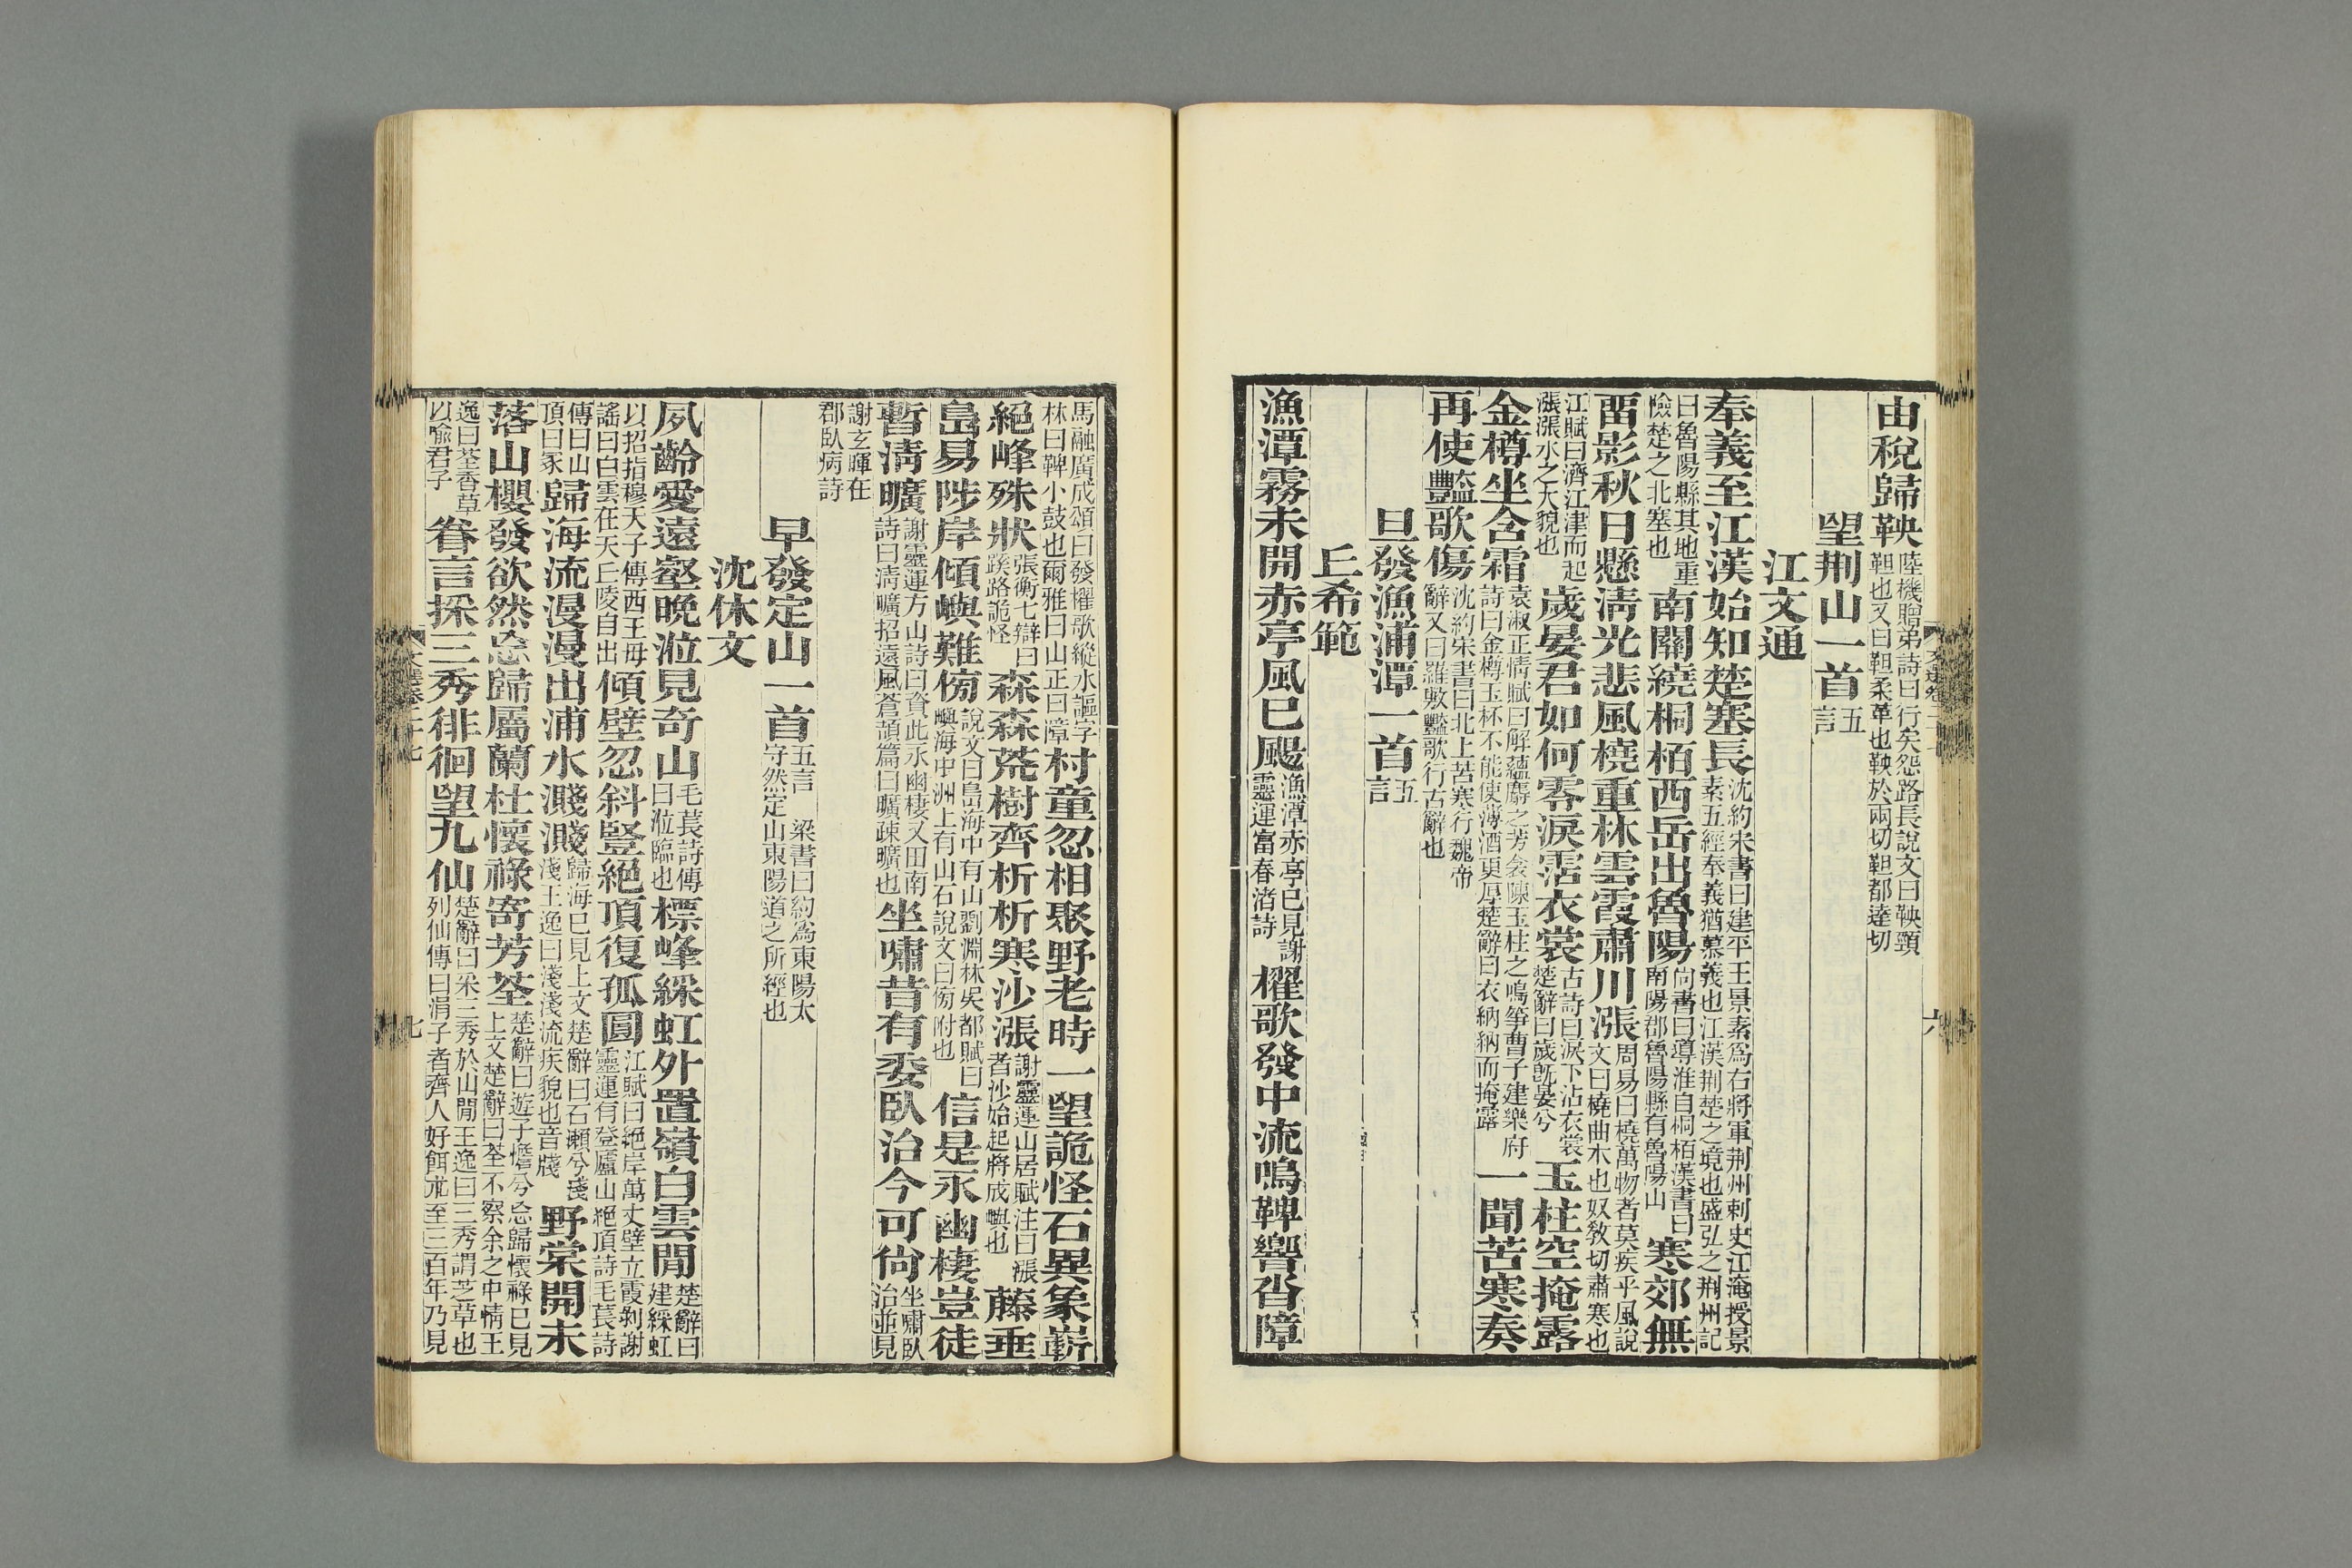 由稅歸鞅陸機贈弟詩曰行矣怨路長說文曰鞅頸靼也又曰靼柔革也鞅於兩切靼都達切
望荆山一首五言
江文通
奉義至江漢始知楚塞長沈約宋書曰建平王景素爲右將軍荆州刺史江淹授景素五經奉義猶慕義也江漢荆楚之境也盛弘之荆州記
曰魯陽縣其地重險楚之北塞也南關繞桐栢西岳出魯陽尚書曰導淮自桐栢漢書曰南陽郡魯陽縣有魯陽山寒郊無
畱影秋日懸淸光悲風橈重林雲霞肅川漲周易曰橈萬物者莫疾乎風說文曰橈曲木也奴敎切肅寒也
江賦曰濟江津而起漲漲水之大貌也歲晏君如何零淚霑衣裳古詩曰淚下沾衣裳楚辭曰歲旣晏兮玉柱空掩露
金樽坐含霜袁淑正情賦曰解蘊麝之芳衾陳玉柱之鳴筝曹子建樂府詩曰金樽玉杯不能使薄酒更厚楚辭曰衣納納而掩露一聞苦寒奏
再使豔歌傷沈約宋書曰北上苦寒行魏帝辭又曰羅敷豔歌行古辭也
旦發漁浦潭一首五言
丘希範
漁潭霧未開赤亭風已颺漁潭赤亭已見謝靈運富春渚詩櫂歌發中流鳴鞞響沓障
馬融廣成頌曰發櫂歌縱水謳字林曰鞞小鼓也爾雅曰山正曰障村童忽相聚野老時一望詭怪石異象嶄
絕峰殊狀張衡七辯曰蹊路詭怪森森荒樹齊析析寒沙漲謝靈運山居賦注曰漲者沙始起將成嶼也藤垂
島易陟岸傾嶼難傍說文曰島海中有山劉淵林吳都賦曰嶼海中洲上有山石說文曰傍附也信是永幽棲豈徒
暫淸曠謝靈運方山詩曰資此永幽棲又田南詩曰淸曠招遠風蒼頡篇曰曠疎曠也坐嘯昔有委臥治今可尙坐嘯臥治並見
謝玄暉在郡臥病詩
早發定山一首五言　梁書曰約爲東陽太守然定山東陽道之所經也
沈休文
夙齡愛遠壑晚涖見奇山毛萇詩傳曰涖臨也標峰綵虹外置嶺白雲閒楚辭曰建綵虹
以招指穆天子傳西王母謠曰白雲在天丘陵自出傾壁忽斜豎絕頂復孤圓江賦曰絕岸萬丈壁立霞剝謝靈運有登廬山絕頂詩毛萇詩
傳曰山頂曰冢歸海流漫漫出浦水濺濺歸海已見上文楚辭曰石瀨兮淺淺王逸曰淺淺流疾貌也音牋野棠開未
落山櫻發欲然忘歸屬蘭杜懷祿寄芳荃楚辭曰遊子憺兮忘歸懷祿已見上文楚辭曰荃不察余之中情王
逸曰荃香草以喻君子眷言採三秀徘徊望九仙楚辭曰采三秀於山閒王逸曰三秀謂芝草也列仙傳曰涓子者齊人好餌朮至三百年乃見
文選卷二十七
七